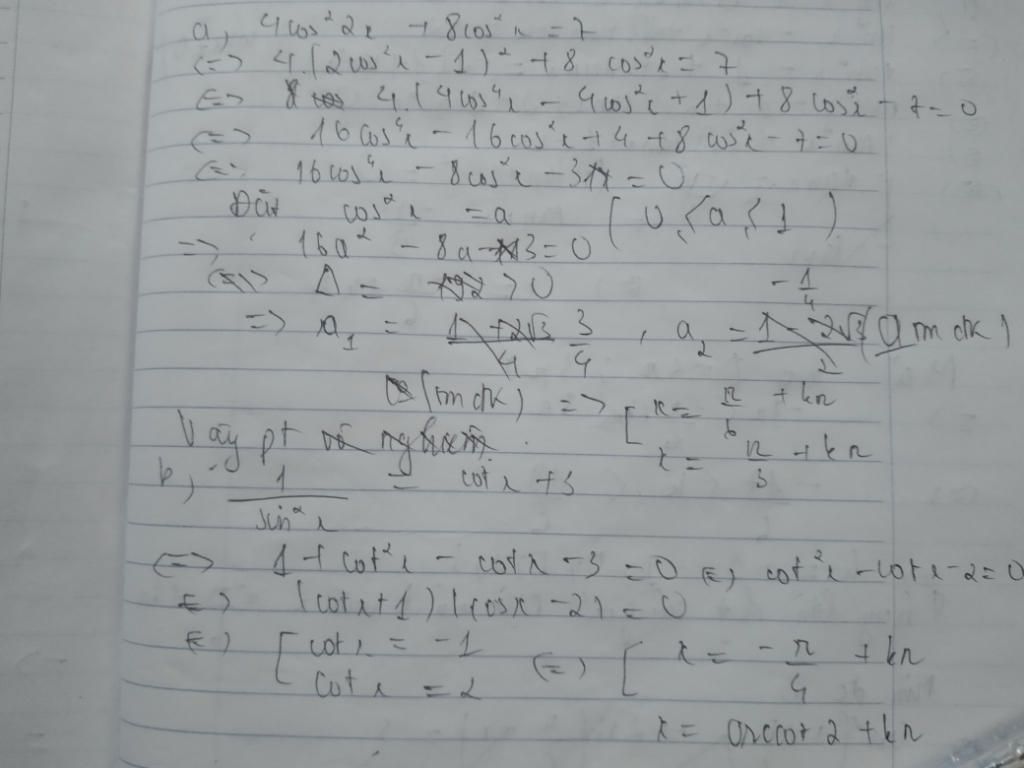 a, 4cos²2x + 8cos²x = 7
<=> 4.(2cos²x - 1)² + 8 cos²x = 7
<=> 4.(4cos⁴x - 4cos²x + 1) + 8cos²x - 7 = 0
<=> 16cos⁴x - 16cos²x + 4 + 8cos²x - 7 = 0
<=> 16cos⁴x - 8cos²x - 3 = 0
Đặt cos²x = a (0 ≤ a ≤ 1)
=> 16a² - 8a - 3 = 0
<=> Δ = > 0
=> a₁ = 3/4 , a₂ = -1/4 (0 tm đk)
(tm đk) => [ x = π/6 + kπ
Vậy pt x = π/3 + kπ
b, 1/sin²x = cotx + 3
<=> 1 + cot²x - cotx - 3 = 0 <=> cot²x - cotx - 2 = 0
<=> (cotx + 1)(cosx - 2) = 0
<=> [ cotx = -1 <=> [ x = -π/4 + kπ
cotx = 2
x = arccot 2 + kπ